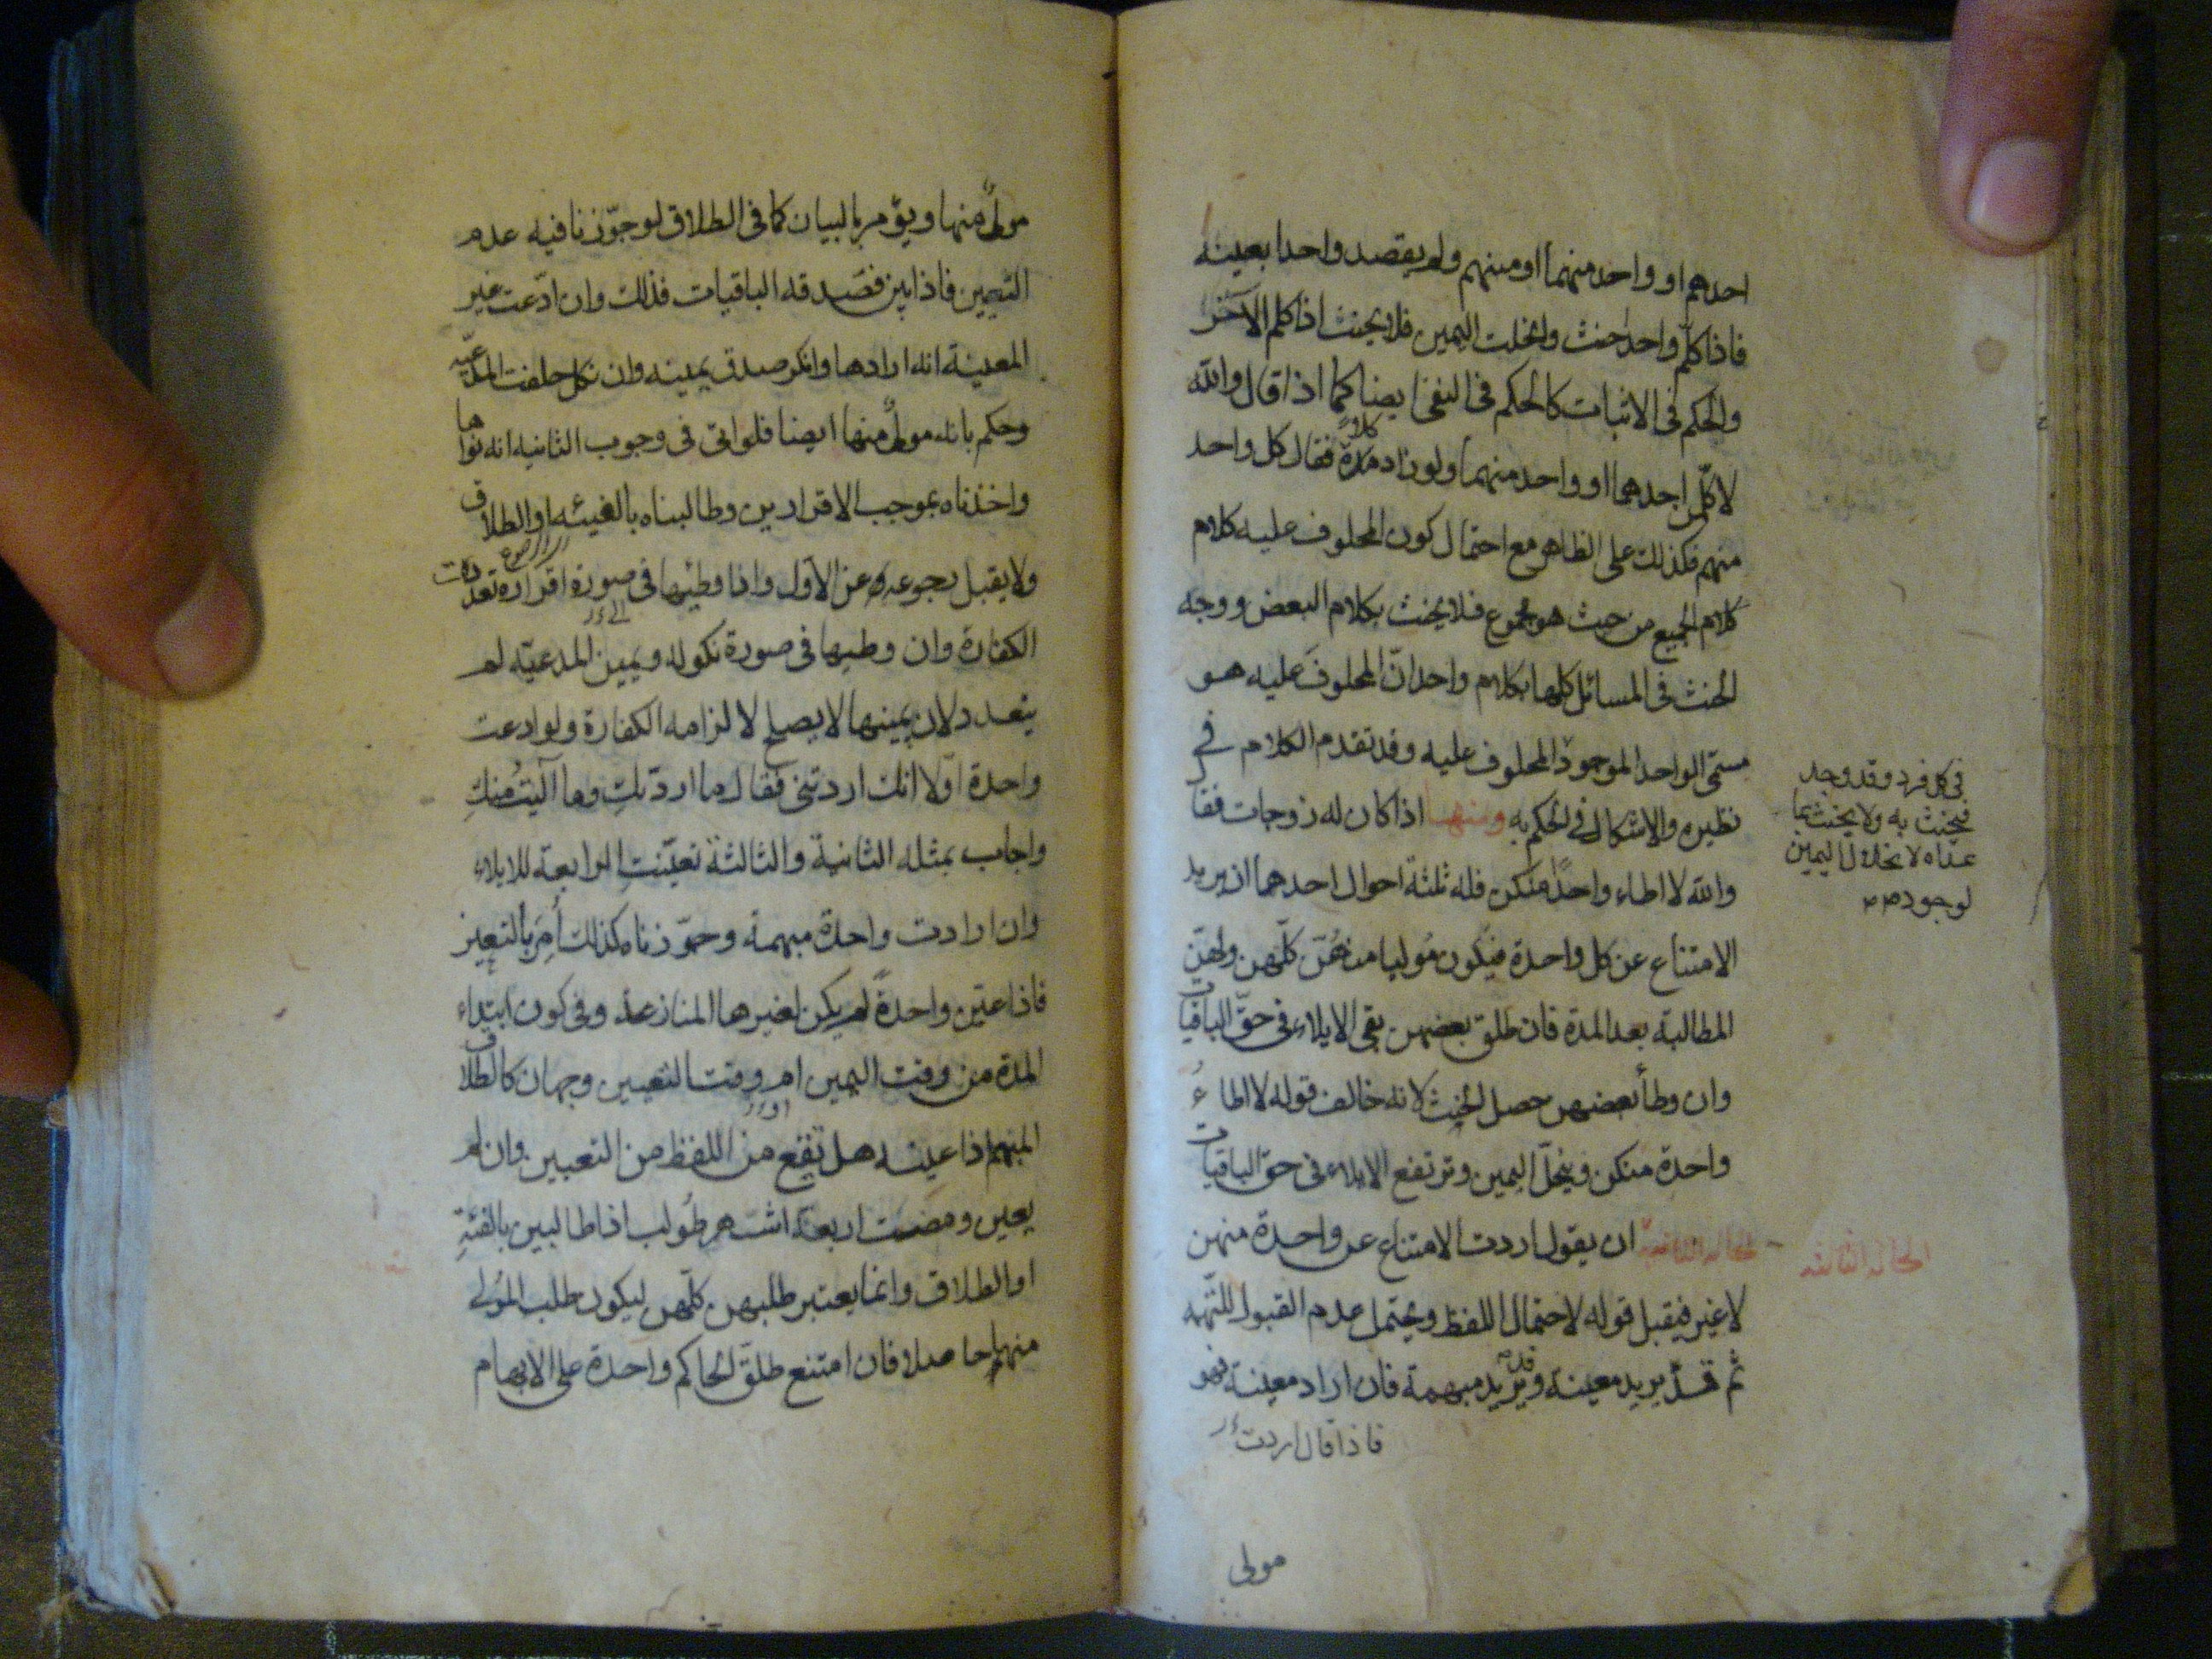 احدهم او واحد منهما او منهم ولم يقصد واحدا بعينه
فاذا كلم واحدا حنث وانحلت اليمين فلا يحنث اذا كلم الآخر
والحكم في الاثبات كالحكم في النفي ايضا كما اذا قال والله
لاكلمن احدهما او واحد منهما ولو زاد مدة فقال كل واحد
كلام
منهم فكذلك على الظاهر مع احتمال كون المحلوف عليه كلام
كلام الجميع من حيث هو مجموع فلا يحنث بكلام البعض ووجه
الحنث في المسائل كلها بكلام واحد انّ المحلوف عليه هو
مسمّى الواحد الموجود المحلوف عليه وقد تقدم الكلام في
نظيره والاشكال في الحكم به ومنها اذا كان له زوجات فقا
والله لا اطاء واحدة منكن فله ثلثة احوال احدهما ان يريد
الامتناع عن كل واحدة فيكون موليا منهنّ كلّهن ولهنّ
المطالبة بعد المدة فان طلق بعضهن بقى الايلاء في حقّ الباقيات
وان وطأ بعضهن حصل الحنث لانه خالف قوله لا اطاء
واحدة منكن وينحلّ اليمين وترتفع الايلاء في حق الباقيات
الحالة الثانية ان يقول اردت الامتناع عن واحدة منهن
لا غير فيقبل قوله لاحتمال اللفظ ويحتمل عدم القبول للتهمه
ثم قد يريد معينة وقد يريد مبهمة فان اراد معينة فهو
فاذا قال اردت
مولى
في كل فرد وقد وجد
فيحنث به ولا يحنث بما
عداه لانحلال اليمين
لوجود
الحالة الثانية
مولٍ منها ويؤمر بالبيان كما في الطلاق لو جوّزنا فيه عدم
التعيين فاذا بيّن فصدقه الباقيات فذلك وان ادّعت غير
المعينة انه ارادها وانكر صدق بيمينه وان نكل حلفت المدعيه
وحكم بانه مولٍ منها ايضا فلو اتى في وجوب الثانيه انه نواها
واخذناه بموجب الاقرارين وطالبناه بالفيئه او الطلاق
ولا يقبل رجوعه عن الاول واذا وطئها في صورة اقراره تعددت
الكفارة وان وطيها في صورة نكوله ويمين المدعيّه لم
يتعدد لان يمينها لا يصلح لالزامه الكفارة ولو ادعت
واحدة اوّلا انك اردتني فقال ما اردتكِ وما آليتُ منكِ
واجاب بمثله الثانية والثالثة تعيّنتِ الرابعة للايلاء
وان ارادت واحدة مبهمة وجوّزناه كذلك أُمِرَ بالتعيين
فاذا عيّن واحدةً لم يكن لغيرها المنازعة وفي كون ابتداء
المدة من وقت اليمين ام وقت التعيين وجهان كالطلاق
المبهم اذا عينه هل تقع من اللفظ من التعيين وان لم
يعين ومضت اربعة اشهر طُولب اذا طالبن بالفئةِ
او الطلاق وانما يعتبر طلبهن كلّهن ليكون طلب المُولي
منها حاصلا فان امتنع طلّق الحاكم واحدة على الابهام